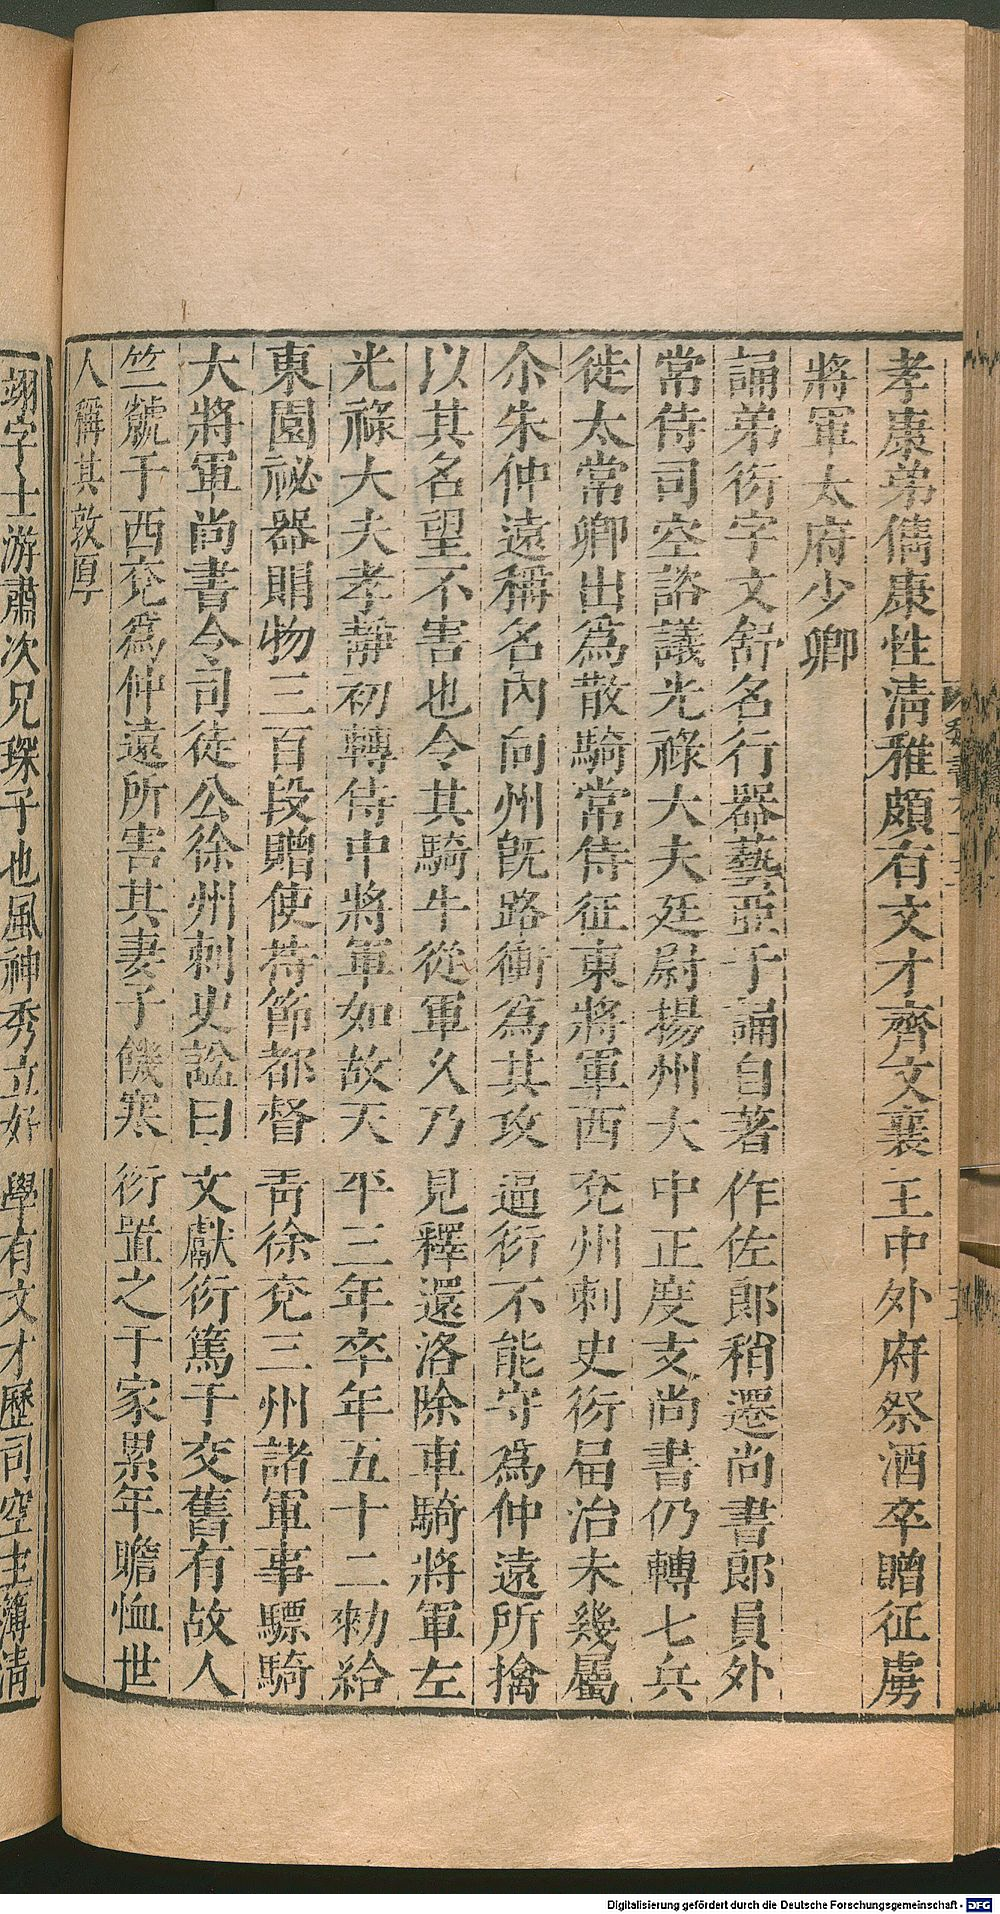 孝康弟儁康性清雅頗有文才齊文襄王中外府祭酒卒贈征虜
將軍太府少卿
誦弟衍字文舒名行器藝亞于誦自著作佐郎稍遷尚書郎員外
常侍司空諮議光祿大夫廷尉揚州大中正度支尚書仍轉七兵
徙太常卿出為散騎常侍征東將軍西兖州刺史衍屆治未幾屬
尒朱仲遠稱名內向州旣路衝為其攻逼衍不能守為仲遠所擒
以其名望不害也令其騎牛從軍久乃見釋還洛除車騎將軍左
光祿大夫孝靜初轉侍中將軍如故天平三年卒年五十二勑給
東園祕器賵物三百段贈使持節都督青徐兖三州諸軍事驃騎
大將軍尚書令司徒公徐州刺史諡曰文獻衍篤于交舊有故人
竺虤于西兖為仲遠所害其妻子饑寒衍置之于家累年贍恤世
人稱其敦厚
翊字士游肅次兄琛子也風神秀立好學有文才歷司空主簿清
Digitalisierung gefördert durch die Deutsche Forschungsgemeinschaft - DFG